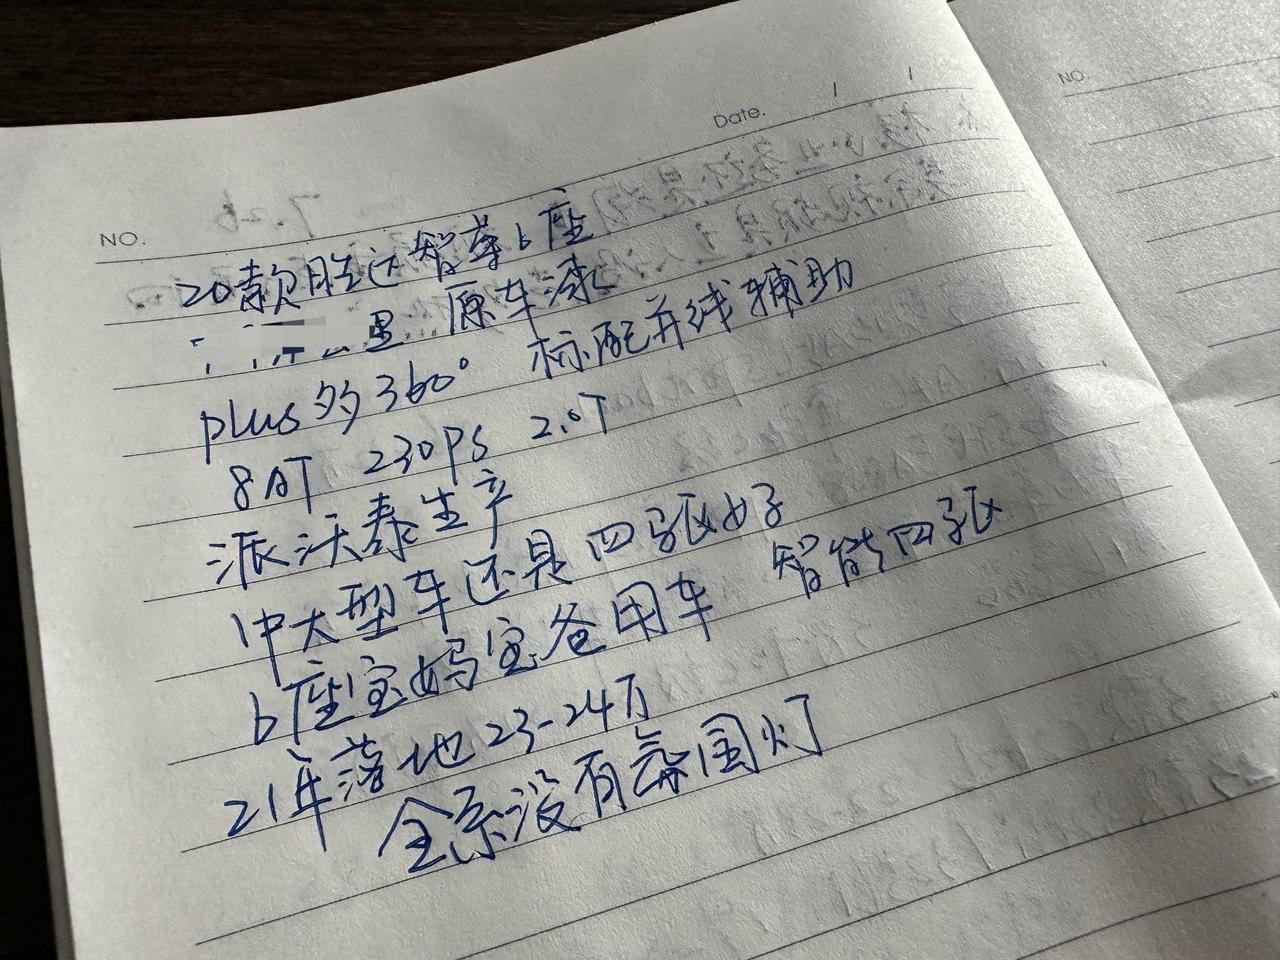 Date.
NO.
NO.
20款胜达智尊6座
里 原车漆
plus多360° 标配并线辅助
8AT 230PS 2.0T
派沃泰生产
中大型车还是四驱好
6座宝妈宝爸用车 智能四驱
21年落地23-24万
全系没有氛围灯